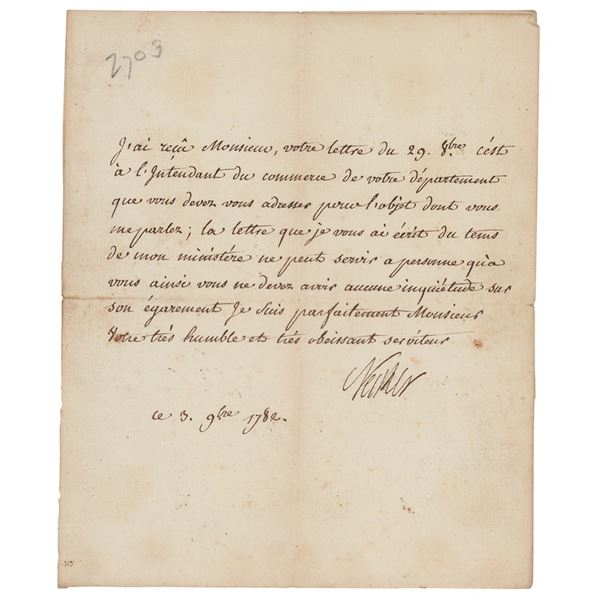 2703
J'ai reçû Monsieur, votre lettre du 29. 8.bre c'ést
à l'Intendant du commerce de votre département
que vous devez vous adresser pour l'objet dont vous
me parlez; la lettre que je vous ai écrit du tems
de mon ministére ne peut servir a personne qu'a
vous ainsi vous ne devez avoir aucune inquiétude sur
son égarement Je suis parfaitement Monsieur
Votre trés humble et trés obeissant serviteur
Necker
ce 3. 9bre 1782.